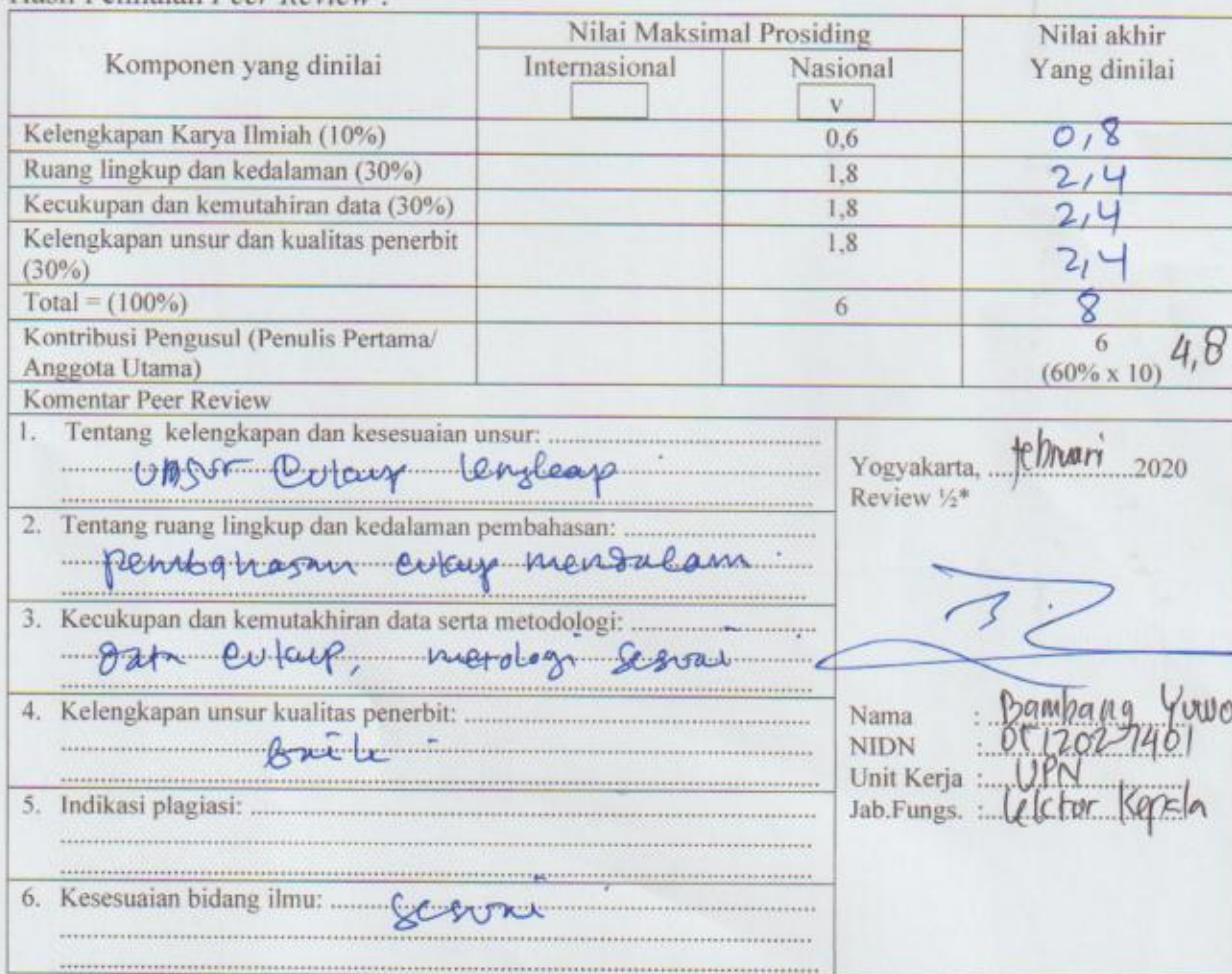 Hasil Penilaian Peer Review :
Komponen yang dinilai
Nilai Maksimal Prosiding
Nilai akhir
Yang dinilai
Internasional
Nasional
v
Kelengkapan Karya Ilmiah (10%) 0,6 0,8
Ruang lingkup dan kedalaman (30%) 1,8 2,4
Kecukupan dan kemutahiran data (30%) 1,8 2,4
Kelengkapan unsur dan kualitas penerbit 1,8 2,4
(30%)
Total = (100%) 6 8
Kontribusi Pengusul (Penulis Pertama/ 6 4,8
Anggota Utama) (60% x 10)
Komentar Peer Review
1. Tentang kelengkapan dan kesesuaian unsur:
unsur cukup lengkap
2. Tentang ruang lingkup dan kedalaman pembahasan:
pembahasan cukup mendalam
3. Kecukupan dan kemutakhiran data serta metodologi:
data cukup, metologi sesuai
4. Kelengkapan unsur kualitas penerbit:
baik
5. Indikasi plagiasi:
6. Kesesuaian bidang ilmu: sesuai
Yogyakarta, februari 2020
Review ½*
Nama : Bambang Yuwo
NIDN :
Unit Kerja : UPN
Jab.Fungs. : Lektor Kepala